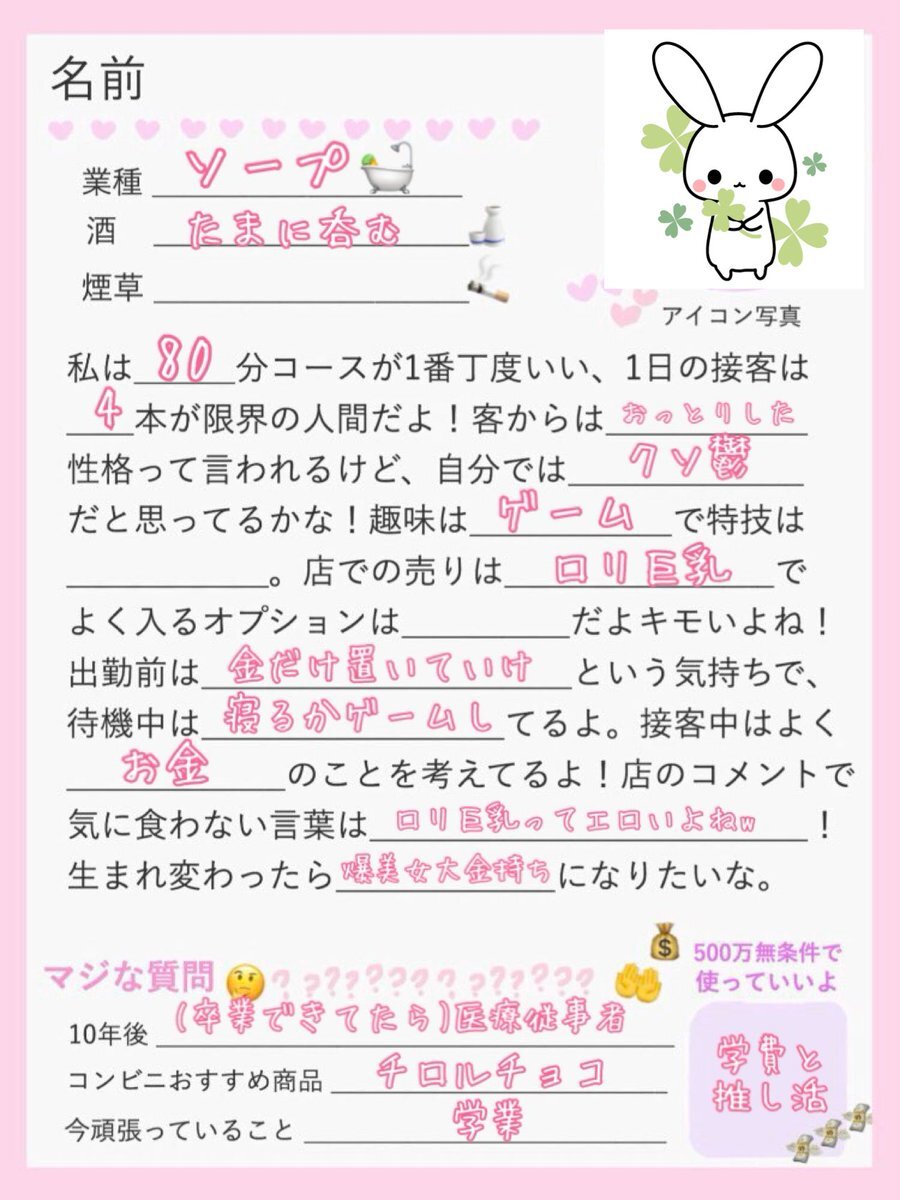 名前
業種 ソープ
酒 たまに呑む
煙草
アイコン写真
私は80分コースが1番丁度いい、1日の接客は
4本が限界の人間だよ！客からはおっとりした
性格って言われるけど、自分ではクソ鬱
だと思ってるかな！趣味はゲームで特技は
。店での売りはロリ巨乳で
よく入るオプションはだよキモいよね！
出勤前は金だけ置いていけという気持ちで、
待機中は寝るかゲームしてるよ。接客中はよく
お金のことを考えてるよ！店のコメントで
気に食わない言葉はロリ巨乳ってエロいよねw！
生まれ変わったら爆美女大金持ちになりたいな。
マジな質問????????????????
500万無条件で
使っていいよ
10年後 (卒業できてたら)医療従事者
コンビニおすすめ商品 チロルチョコ
今頑張っていること 学業
学費と
推し活